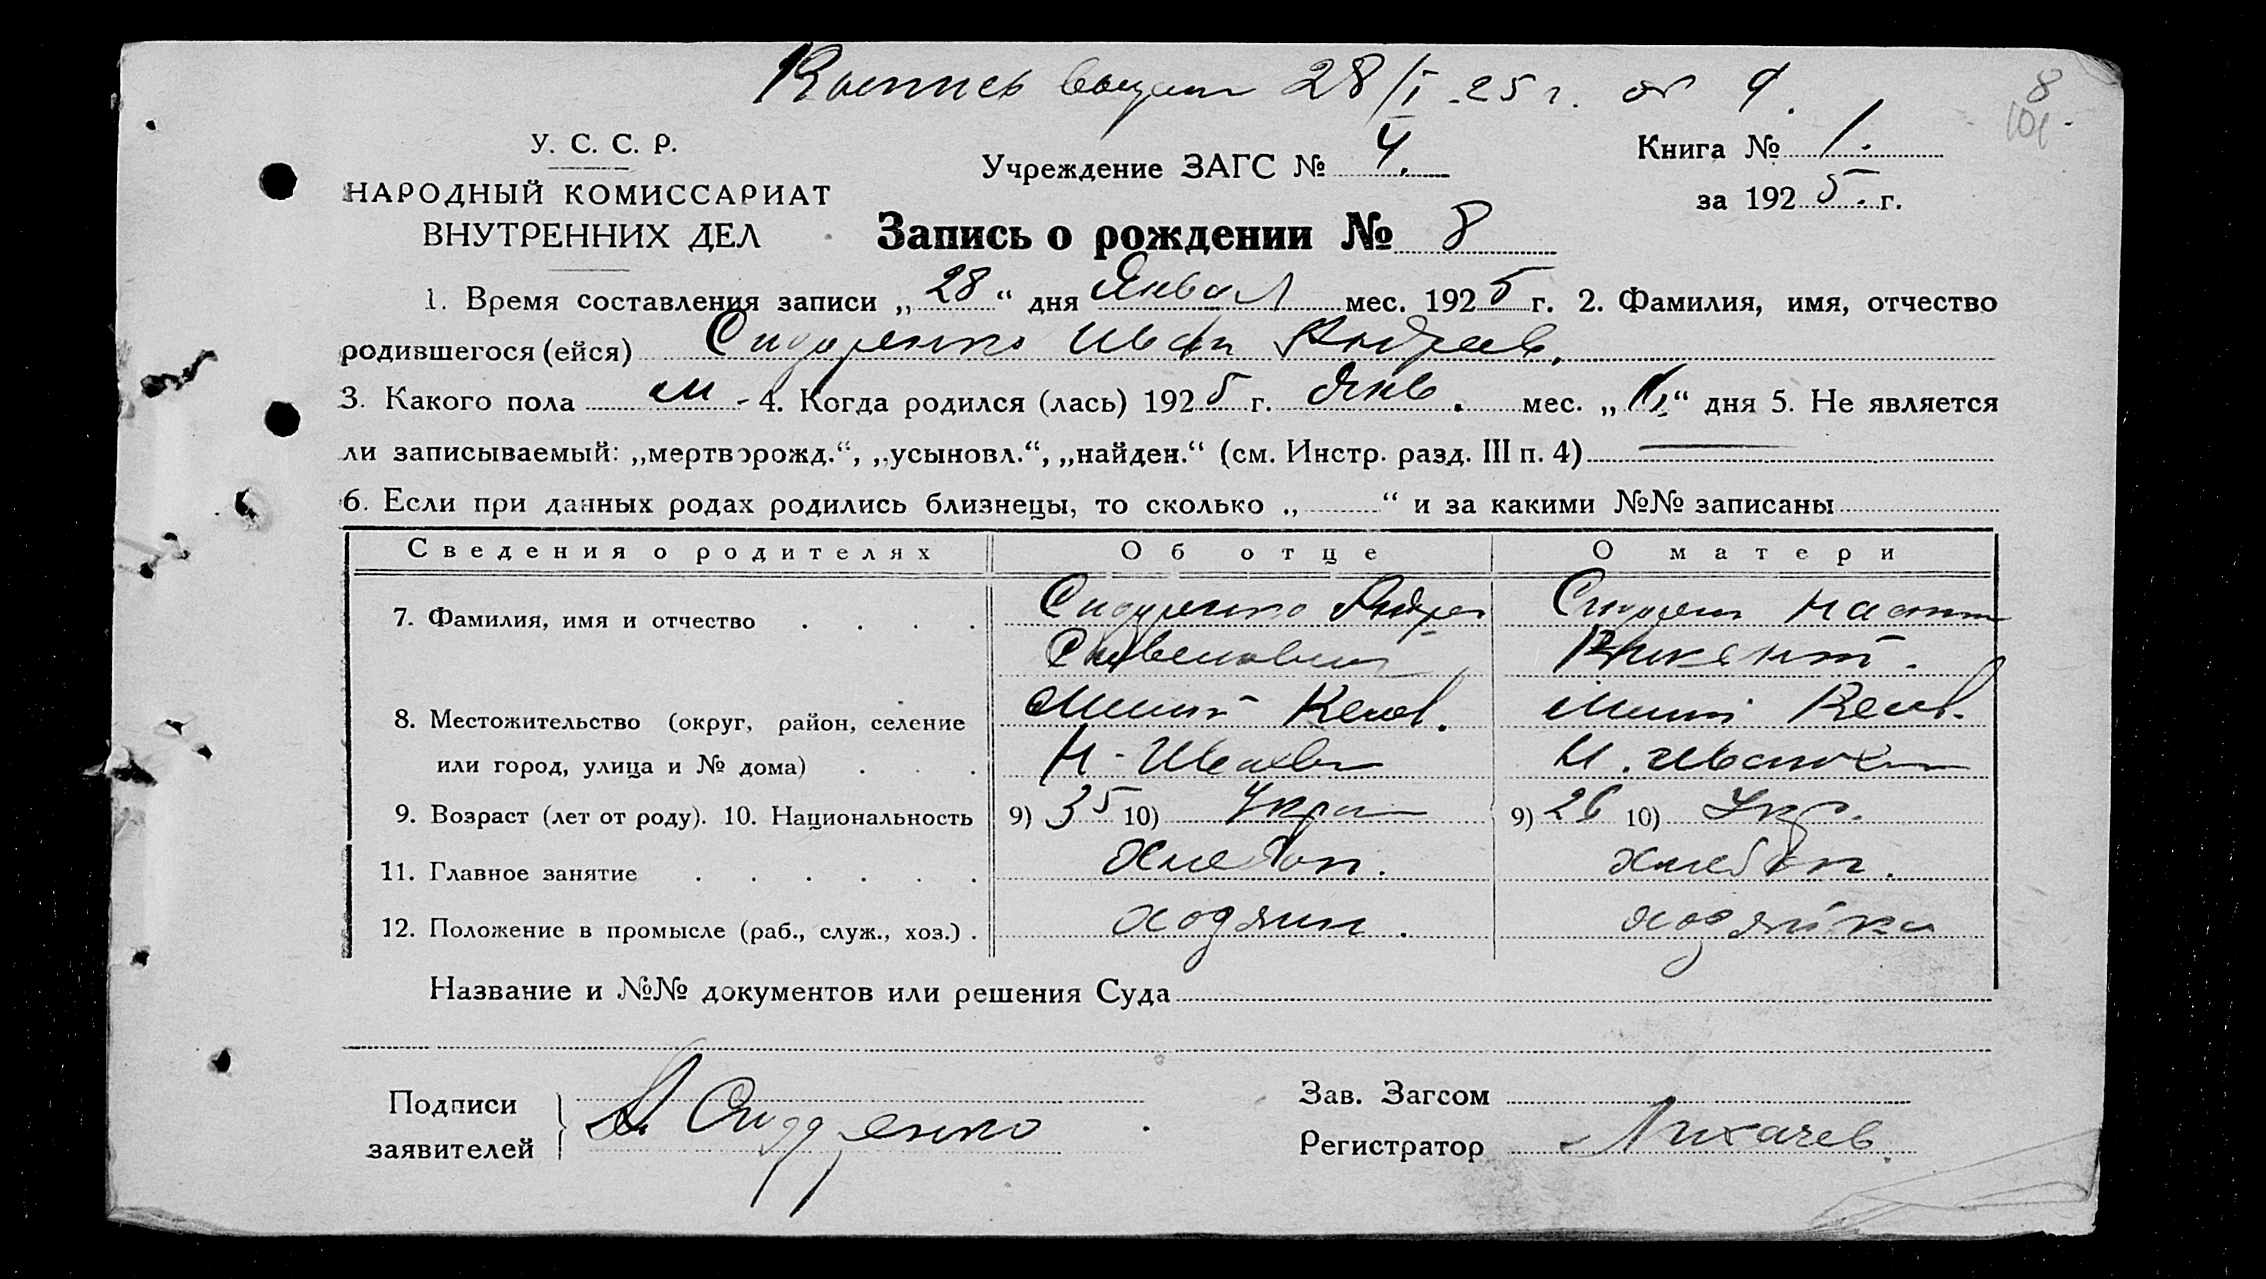 28/I 25 г. 9.
8
У. С. С. Р.
НАРОДНЫЙ КОМИССАРИАТ
ВНУТРЕННИХ ДЕЛ
Учреждение ЗАГС № 4.
Книга № 1.
за 1925 г.
Запись о рождении № 8
1. Время составления записи „28“ дня Января мес. 1925 г. 2. Фамилия, имя, отчество
родившегося (ейся) Сидоренко Иван Андреев.
3. Какого пола м - 4. Когда родился (лась) 1925 г. Янв. мес. „ “ дня 5. Не является
ли записываемый: „мертворожд.“, „усыновл.“, „найден.“ (см. Инстр. разд. III п. 4) —
6. Если при данных родах родились близнецы, то сколько „ “ и за какими №№ записаны
Сведения о родителях Об отце О матери
7. Фамилия, имя и отчество Сидоренко Андрей
Викент.
8. Местожительство (округ, район, селение
или город, улица и № дома)
9. Возраст (лет от роду). 10. Национальность 9) 35 10) Укра 9) 26 10) Укр.
11. Главное занятие Хлебоп. хлебоп.
12. Положение в промысле (раб., служ., хоз.) хозяин. хозяйка
Название и №№ документов или решения Суда
Подписи
заявителей } А Сидоренко
Зав. Загсом
Регистратор Лихачев